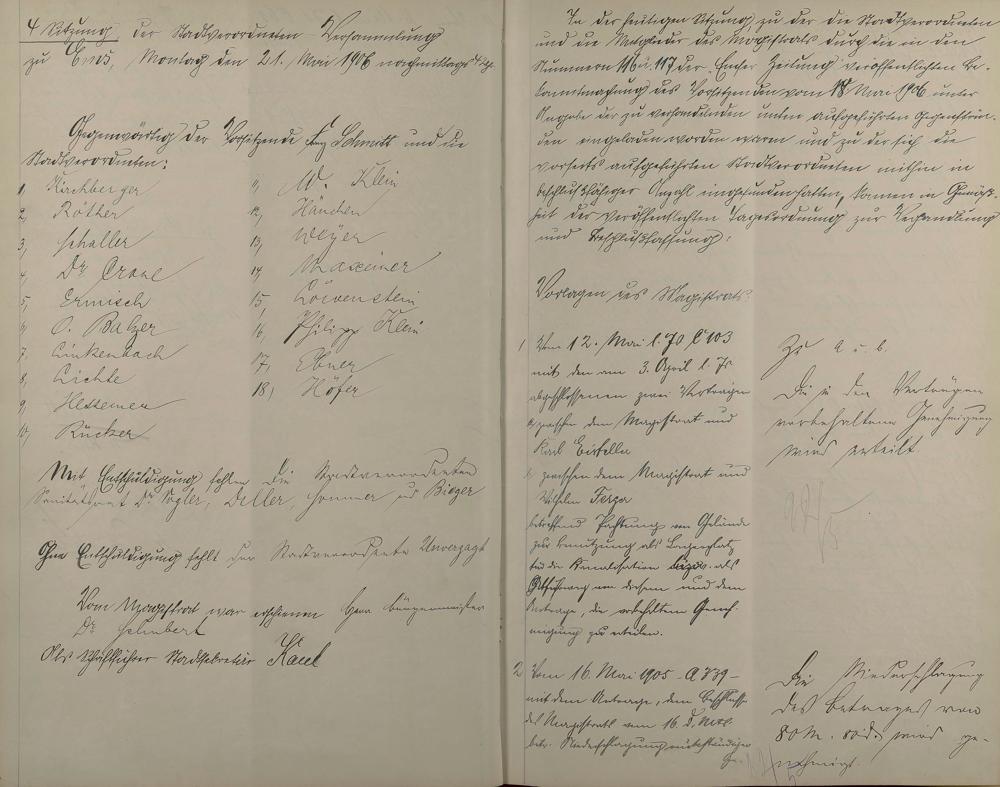 4 Sitzung der Stadtverordneten-Versammlung
zu Ems, Montag den 21. Mai 1906 nachmittags
Gegenwärtig der Vorsitzende Schmitt und die
Stadtverordneten:
1, Kirchberger
2, Röther
3, Schaller
4, Dr. Crone
5, Ermisch
6, O. Balzer
7, Linkenbach
8, Lichte
9, Hessemer
10, Rücker
11, W. Klein
12, Hänchen
13, Weyer
14, Maxeiner
15, Löwenstein
16, Philipp Klein
17, Ebner
18, Höfer
Mit Entschuldigung fehlen die Stadtverordneten
Sanitätsrat Dr. Vogler, Deller, Sommer und Bieger
Ohne Entschuldigung fehlt der Stadtverordnete Unverzagt
Vom Magistrat war erschienen Herr Bürgermeister
Dr. Schubert
Als Schriftführer Stadtsekretär Kaul
In der heutigen Sitzung, zu der die Stadtverordneten
und die Mitglieder des Magistrats durch die in den
Nummern 116 u. 117 der Emser Zeitung veröffentlichten Be-
kanntmachung des Vorsitzenden vom 18 Mai 1906 unter
Angabe der zu verhandelnden unten aufgeführten Gegenstän-
den eingeladen worden waren und zu der sich die
vorseits aufgeführten Stadtverordneten mithin in
beschlußfähiger Anzahl eingefunden hatten, kamen in Gemäß-
heit der veröffentlichten Tagesordnung zur Verhandlung
und Beschlußfassung:
Vorlagen des Magistrats:
1 Vom 12. Mai l. Js C 103
mit den am 3. April l. Js
abgeschlossenen zwei Verträgen
a, zwischen dem Magistrat und
Karl
b, zwischen dem Magistrat und
Wilhelm
betreffend Pachtung von Gelände
zur Benutzung als Lagerplatz
für die Kanalisation bezw. als
von diesem und dem
Antrage, die vorbehaltene Geneh-
migung zu erteilen.
Zu a u. b.
Die zu den Verträgen
vorbehaltene Genehmigung
wird erteilt
2 Vom 16. Mai 1905 - A 339 -
mit dem Antrage, dem Beschlusse
des Magistrats vom 16. d. Mts.
betr. Niederschlagung rückständiger
Ge-
Die Niederschlagung
des Betrages von
80 M. 80 d. wird ge-
nehmigt.